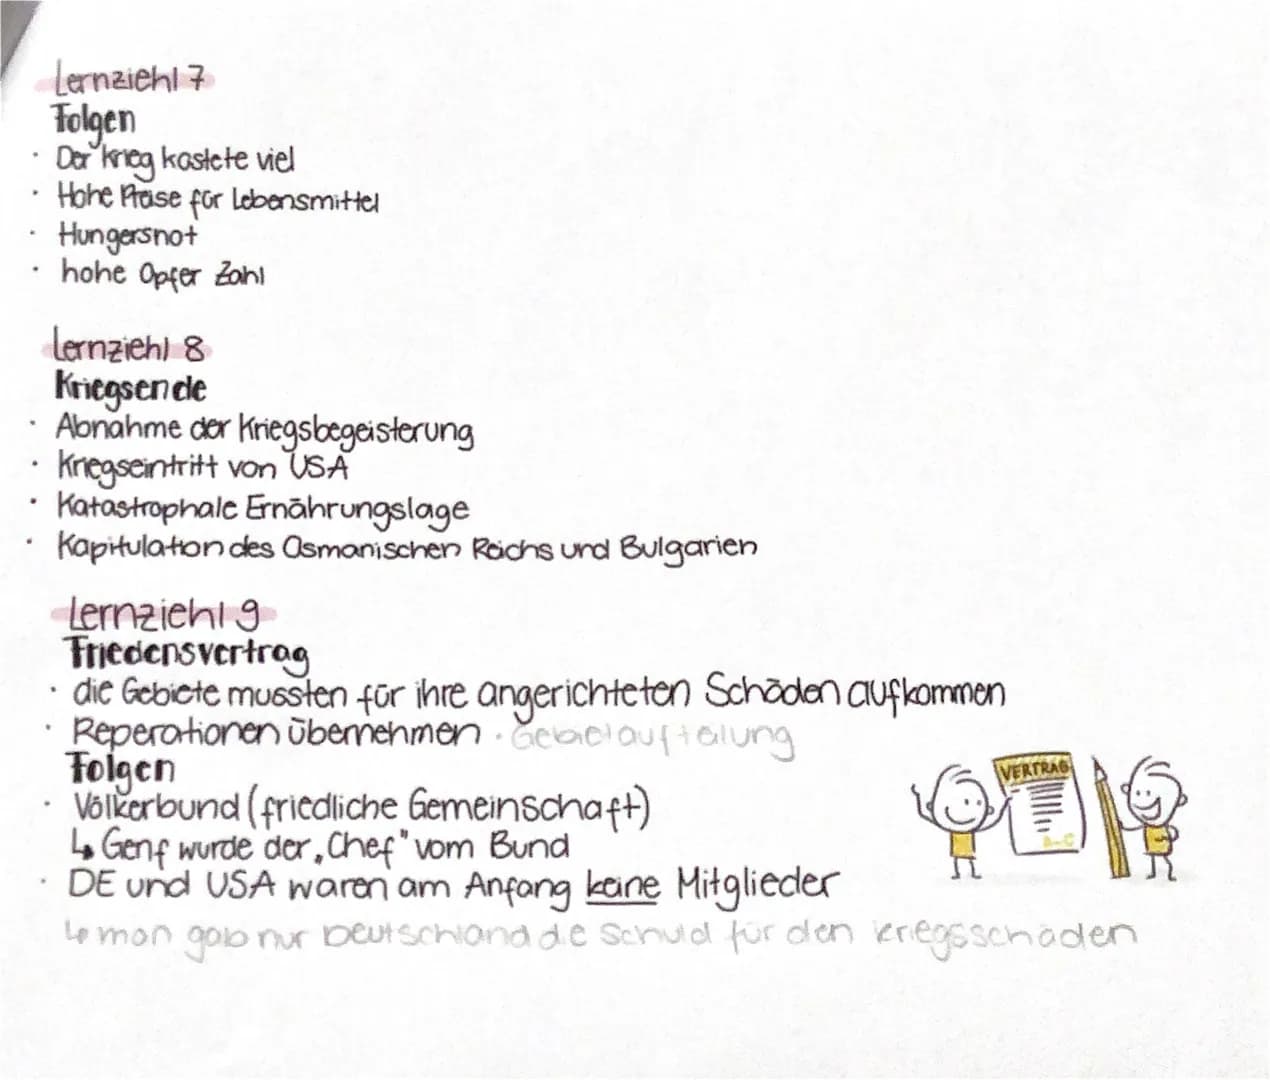 Lernziehl 7
Folgen
· Der krieg kostete viel
· Hohe Preise für Lebensmittel
· Hungersnot
· hohe Opfer Zahl
Lernziehl 8
Kriegsende
· Abnahme der Kriegsbegeisterung
· Kriegseintritt von USA
· Katastrophale Ernährungslage
· Kapitulation des Osmanischen Reichs und Bulgarien
Lernziehl 9
Friedensvertrag
· die Gebiete mussten für ihre angerichteten Schäden aufkommen
· Reperationen übernehmen · Gebietaufteilung
Folgen
· Völkerbund (friedliche Gemeinschaft)
↳ Genf wurde der „Chef" vom Bund
· DE und USA waren am Anfang keine Mitglieder
↳ man gab nur Deutschland die Schuld für den kriegsschäden
VERTRAG
A-C